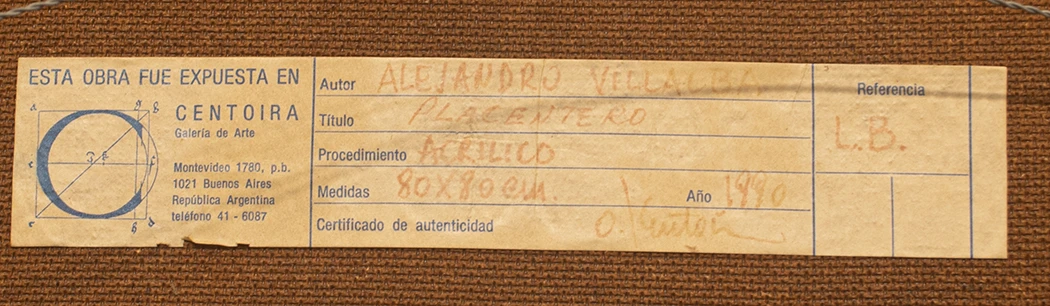 ESTA OBRA FUE EXPUESTA EN
CENTOIRA
Galería de Arte
Montevideo 1780, p.b.
1021 Buenos Aires
República Argentina
teléfono 41 - 6087
Autor ALEJANDRO VILLALBA
Título PLACENTERO
Procedimiento ACRILICO
Medidas 80X80cm. Año 1990
Certificado de autenticidad
Referencia
L.B.